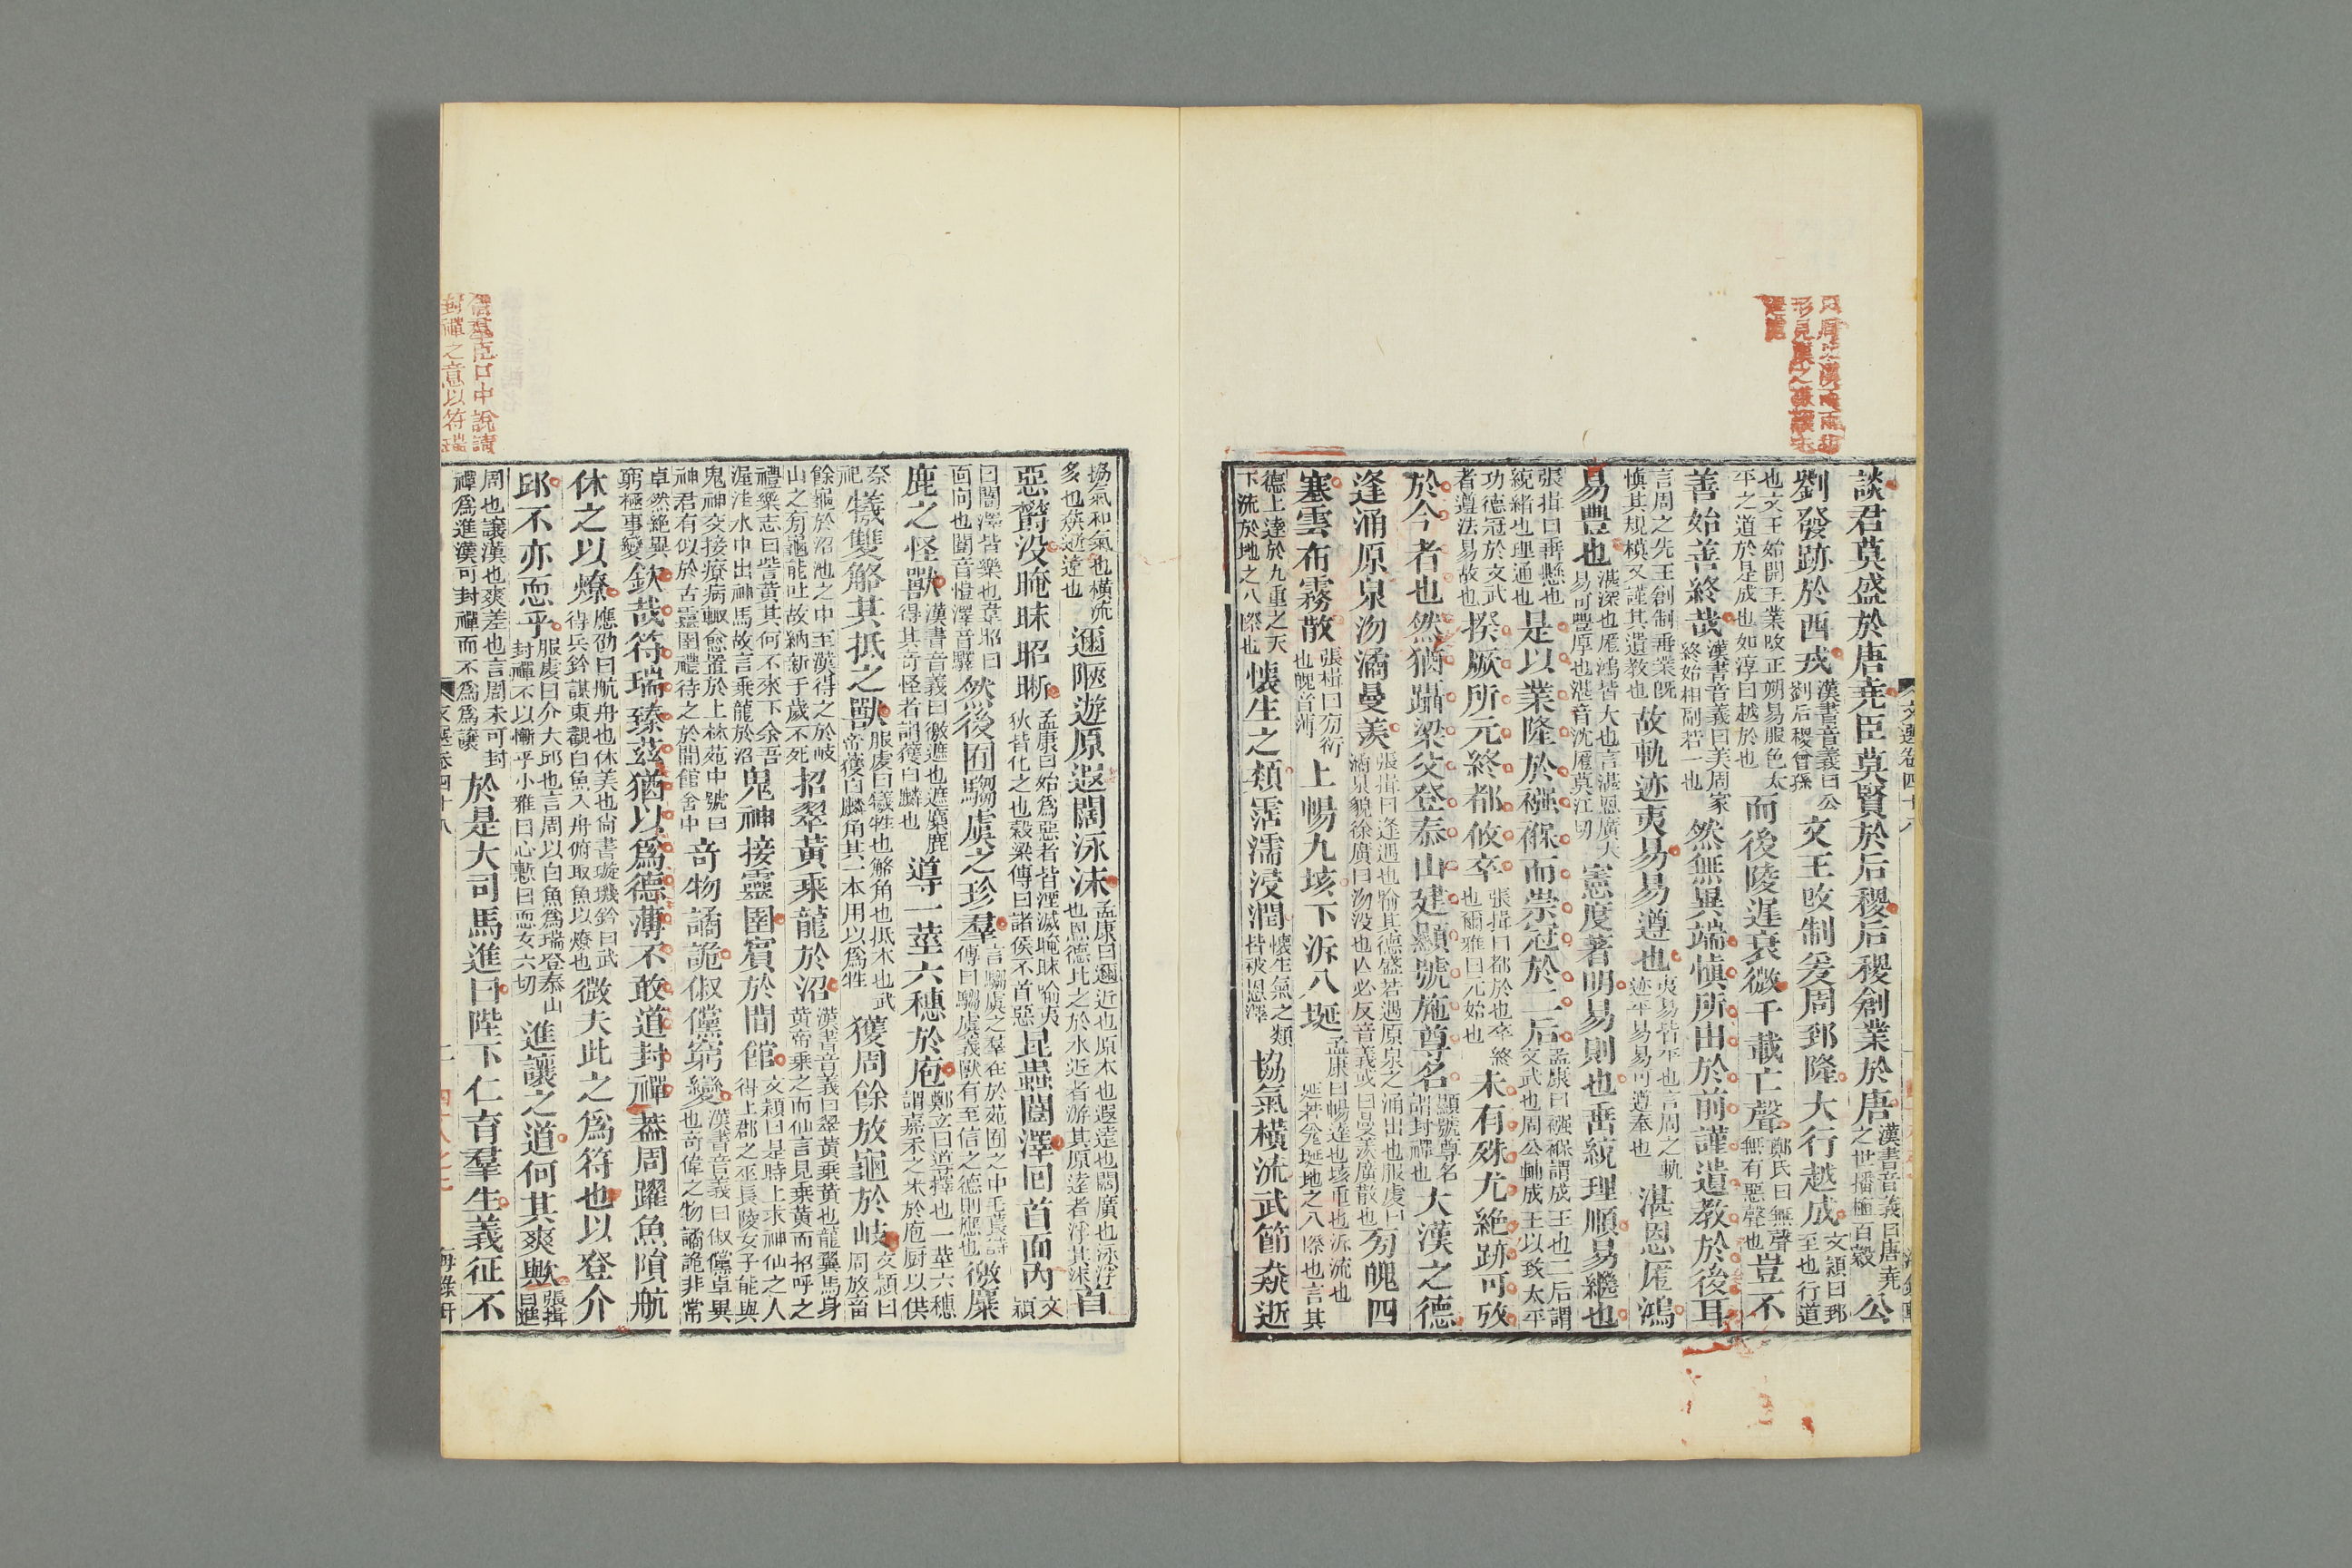 談君莫盛於唐堯臣莫賢於后稷后稷創業於唐漢書音義曰唐堯之世播殖百穀公
劉發跡於西戎漢書音義曰公劉后稷曾孫文王改制爰周郅隆大行越成文穎曰郅至也行道
也文王始開王業改正朔易服色太平之道於是成也如淳曰越於也而後陵遲衰微千載亡聲鄭氏曰無聲無有惡聲也豈不
善始善終哉漢書音義曰美周家終始相副若一也然無異端慎所由於前謹遺教於後耳
言周之先王創制垂業既慎其規模又謹其遺教也故軌迹夷易易遵也夷易皆平也言周之軌迹平易易可遵奉也湛恩厖鴻
易豐也湛深也厖鴻皆大也言湛恩廣大易可豐厚也湛音沈厖莫江切憲度著明易則也垂統理順易繼也
張揖曰垂懸也統緒也理通也是以業隆於襁褓而崇冠於二后孟康曰襁褓謂成王也二后謂文武也周公輔成王以致太平
功德冠於文武者遵法易故也揆厥所元終都攸卒張揖曰都於也卒終也爾雅曰元始也未有殊尤絶跡可攷
於今者也然猶躡梁父登泰山建顯號施尊名顯號尊名謂封禪也大漢之德
逢涌原泉沕潏曼羡張揖曰逢遇也喻其德盛若遇原泉之涌出也服虔曰潏泉貌徐廣曰沕没也亾必反音義或曰曼羡廣散也旁魄四
塞雲布霧散張揖曰旁衍也魄音薄上暢九垓下泝八埏孟康曰暢達也垓重也泝流也埏若瓮埏地之八際也言其
德上達於九重之天下流於地之八際也懷生之類霑濡浸潤懷生氣之類皆被恩澤協氣橫流武節猋逝
協氣和氣也橫流多也猋逝遠也邇陿遊原遐闊泳沫孟康曰邇近也原本也遐遠也闊廣也泳浮也恩德比之於水近者游其原遠者浮其沫首
惡鬱没晻昧昭晰孟康曰始為惡者皆湮滅晻昧喻夷狄皆化之也穀梁傳曰諸侯不首惡昆蟲闓澤回首面内文穎
曰闓澤皆樂也韋昭曰面向也闓音愷澤音驛然後囿騶虞之珍羣言騶虞之羣在於苑囿之中毛萇詩傳曰騶虞義獸有至信之德則應也徼麋
鹿之怪獸漢書音義曰徼遮也遮麋鹿得其奇怪者謂獲白麟也導一莖六穗於庖鄭玄曰導擇也一莖六穗謂嘉禾之米於庖廚以供
祭祀犧雙觡共抵之獸服虔曰犧牲也觡角也抵本也武帝獲白麟角共一本用以為牲獲周餘放龜於岐文穎曰周放畜
餘龜於沼池之中至漢得之於岐山之旁龜能吐故納新千歲不死招翠黃乘龍於沼漢書音義曰翠黃乘黃也龍翼馬身黃帝乘之而仙言見乘黃而招呼之
禮樂志曰訾黃其何不來下余吾渥洼水中出神馬故言乘龍於沼鬼神接靈圉賓於閒館文穎曰是時上求神仙之人得上郡之巫長陵女子能與
鬼神交接療病輒愈置於上林苑中號曰神君有似於古靈圉禮待之於閒館舍中奇物譎詭俶儻窮變漢書音義曰俶儻卓異也奇偉之物譎詭非常
卓然絶異窮極事變欽哉符瑞臻茲猶以為德薄不敢道封禪蓋周躍魚隕航
休之以燎應劭曰航舟也休美也尚書璇璣鈐曰武得兵鈐謀東觀白魚入舟俯取魚以燎也微夫此之為符也以登介
邱不亦恧乎服虔曰介大邱也言周以白魚為瑞登泰山封禪不以慚乎小雅曰心慙曰恧女六切進讓之道何其爽歟張揖曰進
周也讓漢也爽差也言周未可封禪為進漢可封禪而不為為讓於是大司馬進曰陛下仁育羣生義征不
文選卷四十八
借羣臣口中說請
封禪之意以符瑞